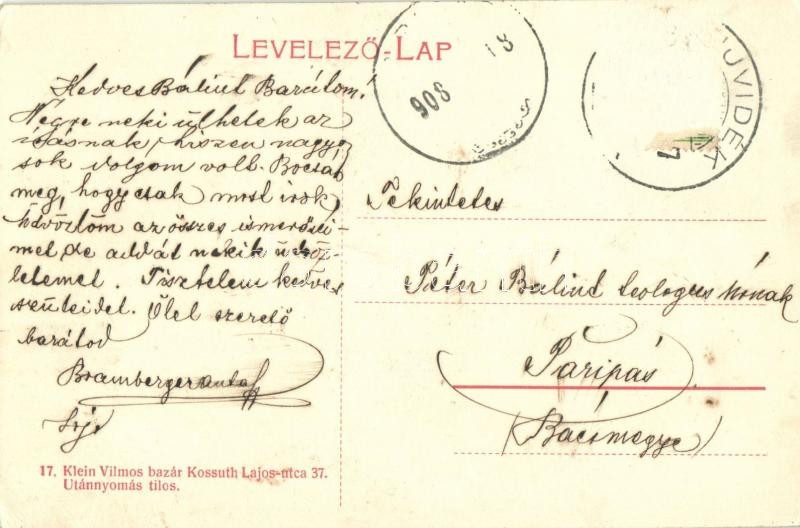 LEVELEZŐ-LAP
Kedves Bálint Barátom!
Végre neki ülhetek az
írásnak, hiszen nagyon
sok dolgom volt. Bocsás
meg, hogy csak most írok
Üdvözlöm az összes ismerősei-
met de addát nekik üdvöz-
letemet. Tisztelem kedves
szüleidet. Ölel szerető
barátod
Bramberger Antal
908
18
UJVIDÉK
Tekintetes
Péter Bálint teologus Úrnak
Paripás
(Bácsmegye)
17. Klein Vilmos bazár Kossuth Lajos-utca 37.
Utánnyomás tilos.